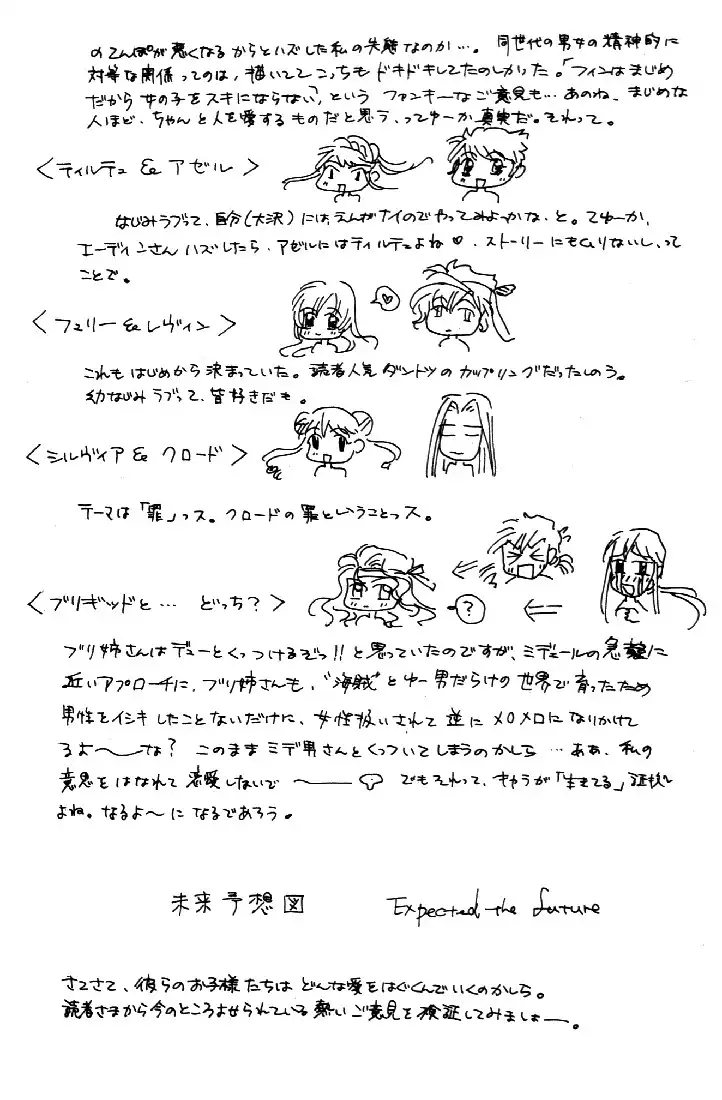 のてんぽが悪くなるからとハズした私の失態なのか…。 同世代の男女の精神的に
対等な関係ってのは、描いててこっちもドキドキしてたのしかった。「フィンはまじめ
だから女の子をスキにならない」、という ファンキーなご意見も… あのね、まじめな
人ほど、ちゃんと人を愛するものだと思う、ってゆーか真実だ。それって。
<ティルテュ & アゼル>
なじみラブって、自分(大沢)には、えんがナイのでやってみよーかな、と。てゆーか、
エーディンさんハズしたら、アゼルにはティルテュよね♡、ストーリーにもムリないし、って
ことで。
<フュリー & レヴィン>
♡
これもはじめから決まっていた。読者人気ダントツのカップリングだったしのう。
幼なじみラブって、皆好きだも。
<シルヴィア & クロード>
テーマは「罪」っス。クロードの罪ということっス。
<ブリギッドと… どっち?>
?
ブリ姉さんはデューとくっつけるぞっ!!と思っていたのですが、ミデェールの急激に
近いアプローチに、ブリ姉さんも、"海賊"とゆー男だらけの世界で育ったため
男性をイシキしたことないだけに、女性扱いされて逆にメロメロになりかけて
るよ〜な? このままミデ男さんとくっついてしまうのかしら…ああ、私の
意思をはなれて恋愛しないで〜 でもそれって、キャラが「生きてる」証拠
よね。なるよ〜になるであろう。
未来予想図 Expected the future
さてさて、彼らのお子様たちはどんな愛をはぐくんでいくのかしら。
読者さまから今のところよせられている熱いご意見を検証してみましょー。